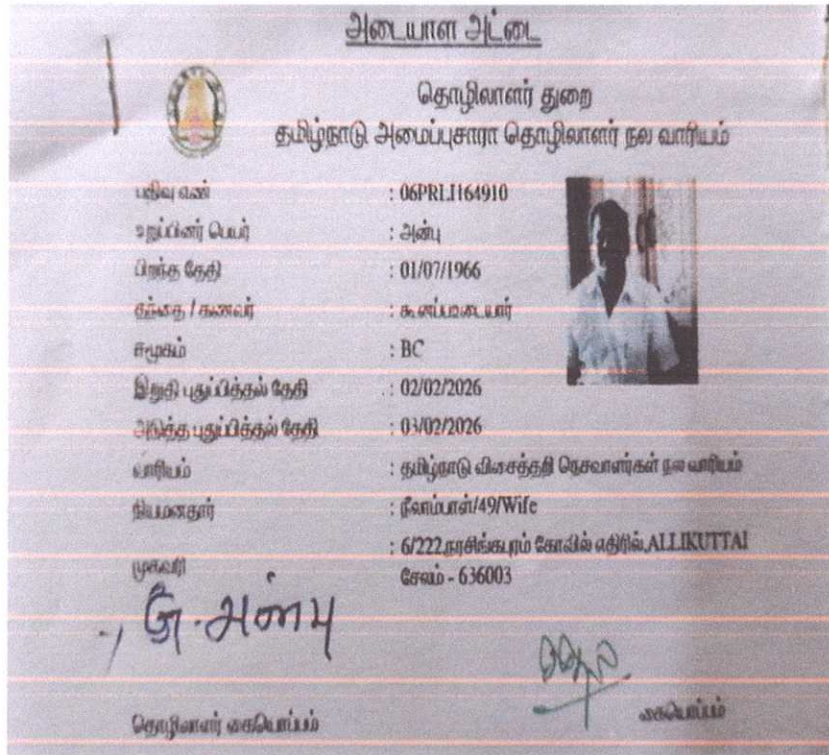 அடையாள அட்டை
தொழிலாளர் துறை
தமிழ்நாடு அமைப்புசாரா தொழிலாளர் நல வாரியம்
பதிவு எண் : 06PRLI164910
உறுப்பினர் பெயர் : அன்பு
பிறந்த தேதி : 01/07/1966
தந்தை / கணவர் :
சமூகம் : BC
இறுதி புதுப்பித்தல் தேதி : 02/02/2026
அடுத்த புதுப்பித்தல் தேதி : 03/02/2026
வாரியம் : தமிழ்நாடு விசைத்தறி நெசவாளர்கள் நல வாரியம்
நியமனதார் : நீலாம்பாள்/49/Wife
முகவரி : 6/222,நரசிங்கபுரம் கோவில் எதிரில்,ALLIKUTTAI
சேலம் - 636003
அன்பு
தொழிலாளர் கையொப்பம் கையொப்பம்